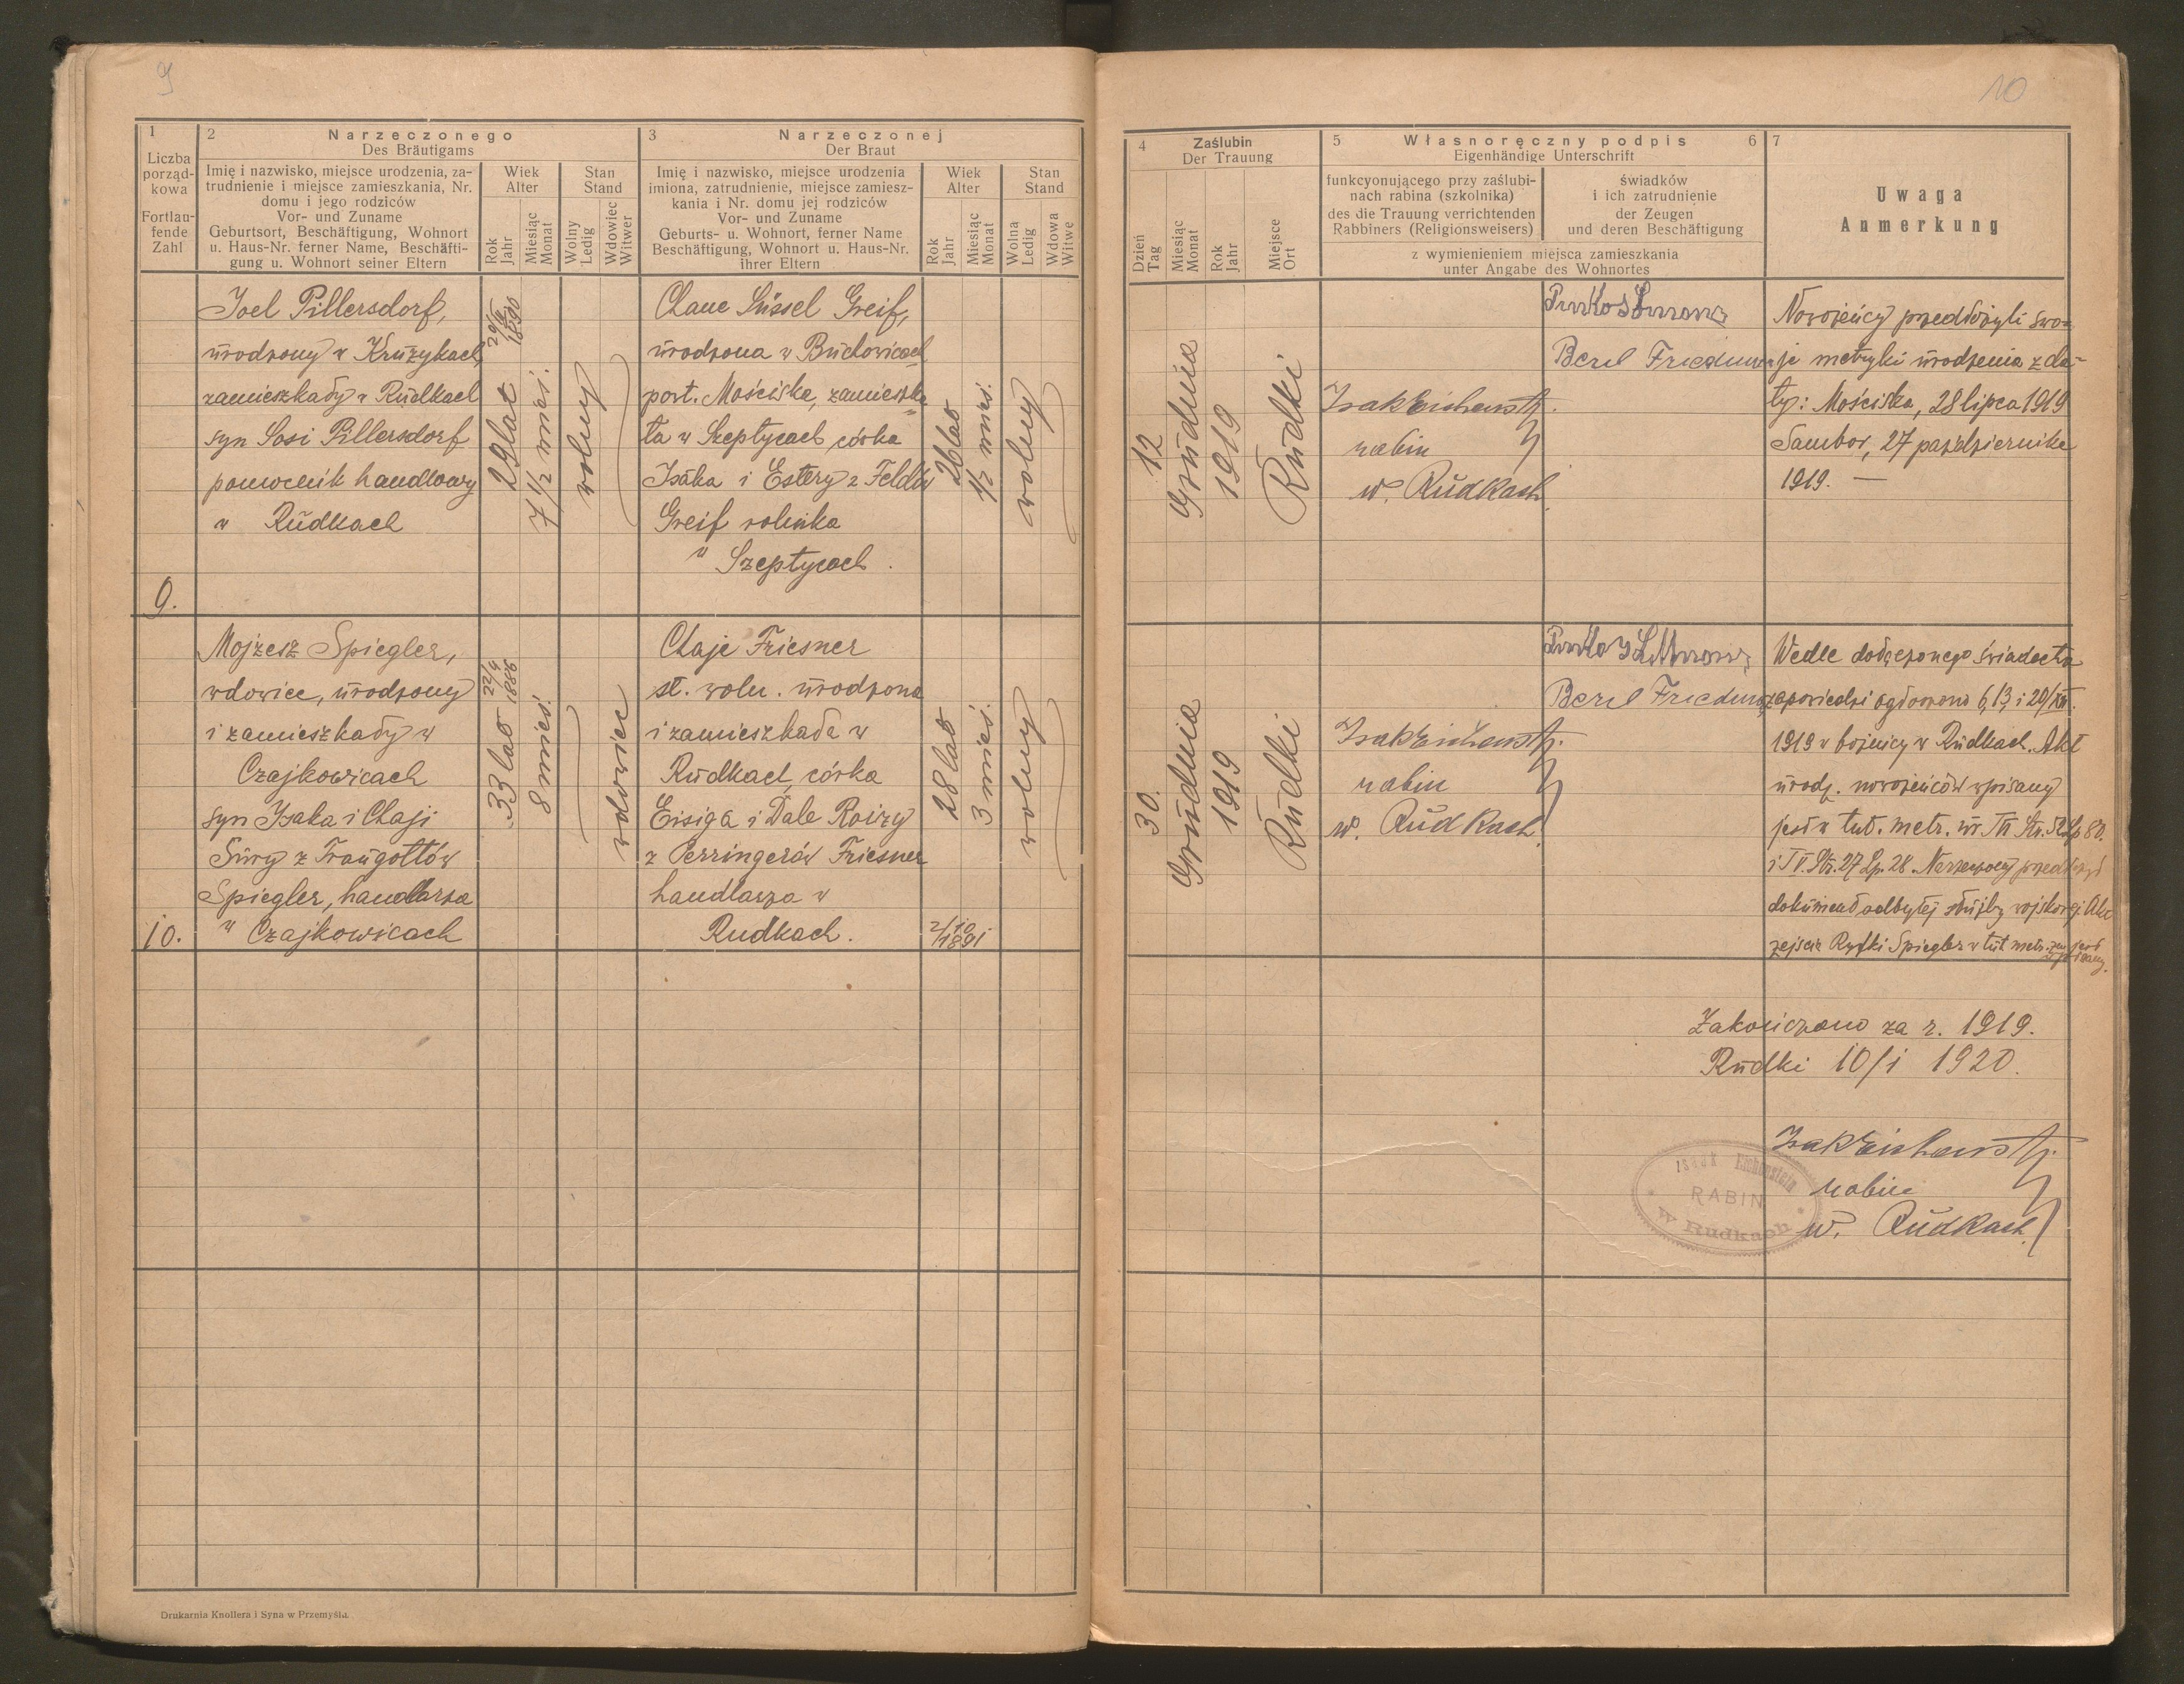 9
1
Liczba
porząd-
kowa
Fortlau-
fende
Zahl
2 Narzęczonego
Des Bräutigams
Imię i nazwisko, miejsce urodzenia, za-
trudnienie i miejsce zamieszkania, Nr.
domu i jego rodziców
Vor- und Zuname
Geburtsort, Beschäftigung, Wohnort
u. Haus-Nr. ferner Name, Beschäfti-
gung u. Wohnort seiner Eltern
Wiek
Alter
Rok
Jahr
Miesiąc
Monat
Stan
Stand
Wolny
Ledig
Wdowiec
Witwer
3 Narzęczonej
Der Braut
Imię i nazwisko, miejsce urodzenia
imiona, zatrudnienie, miejsce zamiesz-
kania i Nr. domu jej rodziców
Vor- und Zuname
Geburts- u. Wohnort, ferner Name
Beschäftigung, Wohnort u. Haus-Nr.
ihrer Eltern
Wiek
Alter
Rok
Jahr
Miesiąc
Monat
Stan
Stand
Wolna
Ledig
Wdowa
Witwe
9.
Joel Pillersdorf,
urodzony w Kruzykach,
zamieszkały w Rudkach
syn Sosi Pillersdorf
pomocnik handlowy
w Rudkach
1890
29 lat
7 1/2 mieś.
wolny
Chane Süssel Greif,
urodzona w Buchowicach
powt. Mościska, zamieszka
ła w Szeptycach córka
Isaka i Estery z Feldów
Greif rolnika
w Szeptycach.
26 lat
1/2 mieś.
wolny
10.
Mojzesz Spiegler,
wdowiec, urodzony
i zamieszkały w
Czajkowicach
syn Isaka i Chaji
Sury z Traugottów
Spiegler, handlarza
w Czajkowicach
22/4 1886
33 lat
8 mieś.
wdowiec
Chaje Friesner
st. woln. urodzona
i zamieszkała w
Rudkach, córka
Eisiga i Dale Roizy
z Perringerów Friesner
handlarza w
Rudkach.
28 lat
3 mieś.
2/10 1891
wolny
Drukarnia Knollera i Syna w Przemyślu.
10
4 Zaślubin
Der Trauung
Dzień
Tag
Miesiąc
Monat
Rok
Jahr
Miejsce
Ort
5 Własnoręczny podpis 6
Eigenhändige Unterschrift
funkcyonującego przy zaślubi-
nach rabina (szkolnika)
des die Trauung verrichtenden
Rabbiners (Religionsweisers)
świadków
i ich zatrudnienie
der Zeugen
und deren Beschäftigung
z wymienieniem miejsca zamieszkania
unter Angabe des Wohnortes
7
Uwaga
Anmerkung
12
Grudnia
1919
Rudki
Isak Eichenstein
rabin
w. Rudkach
Berel Friedman
Nowożeńcy przedłożyli swo-
je metryki urodzenia z da-
ty: Mościska, 28 lipca 1919
Sambor, 27 października
1919. —
30.
Grudnia
1919
Rudki
Isak Eichenstein
rabin
w. Rudkach
Berel Friedman
Wedle dołączonego świadectwa
zapowiedzi ogłoszono 6, 13, i 20/XII.
1919 w bożnicy w Rudkach. Akt
urodz. nowożeńców wpisany
jest w tut. metr. ur. Str. Lp 80.
i T V. Str. 27 Lp. 28. Narzeczony przedłożył
dokument odbytej służby wojskowej. Akt
zejścia Ryfki Spiegler w tut metr. jest
wpisany.
Zakończono za r. 1919.
Rudki 10/1 1920.
Isak Eichenstein
rabin
w. Rudkach
Isaak Eichenstein
RABIN
w Rudkach